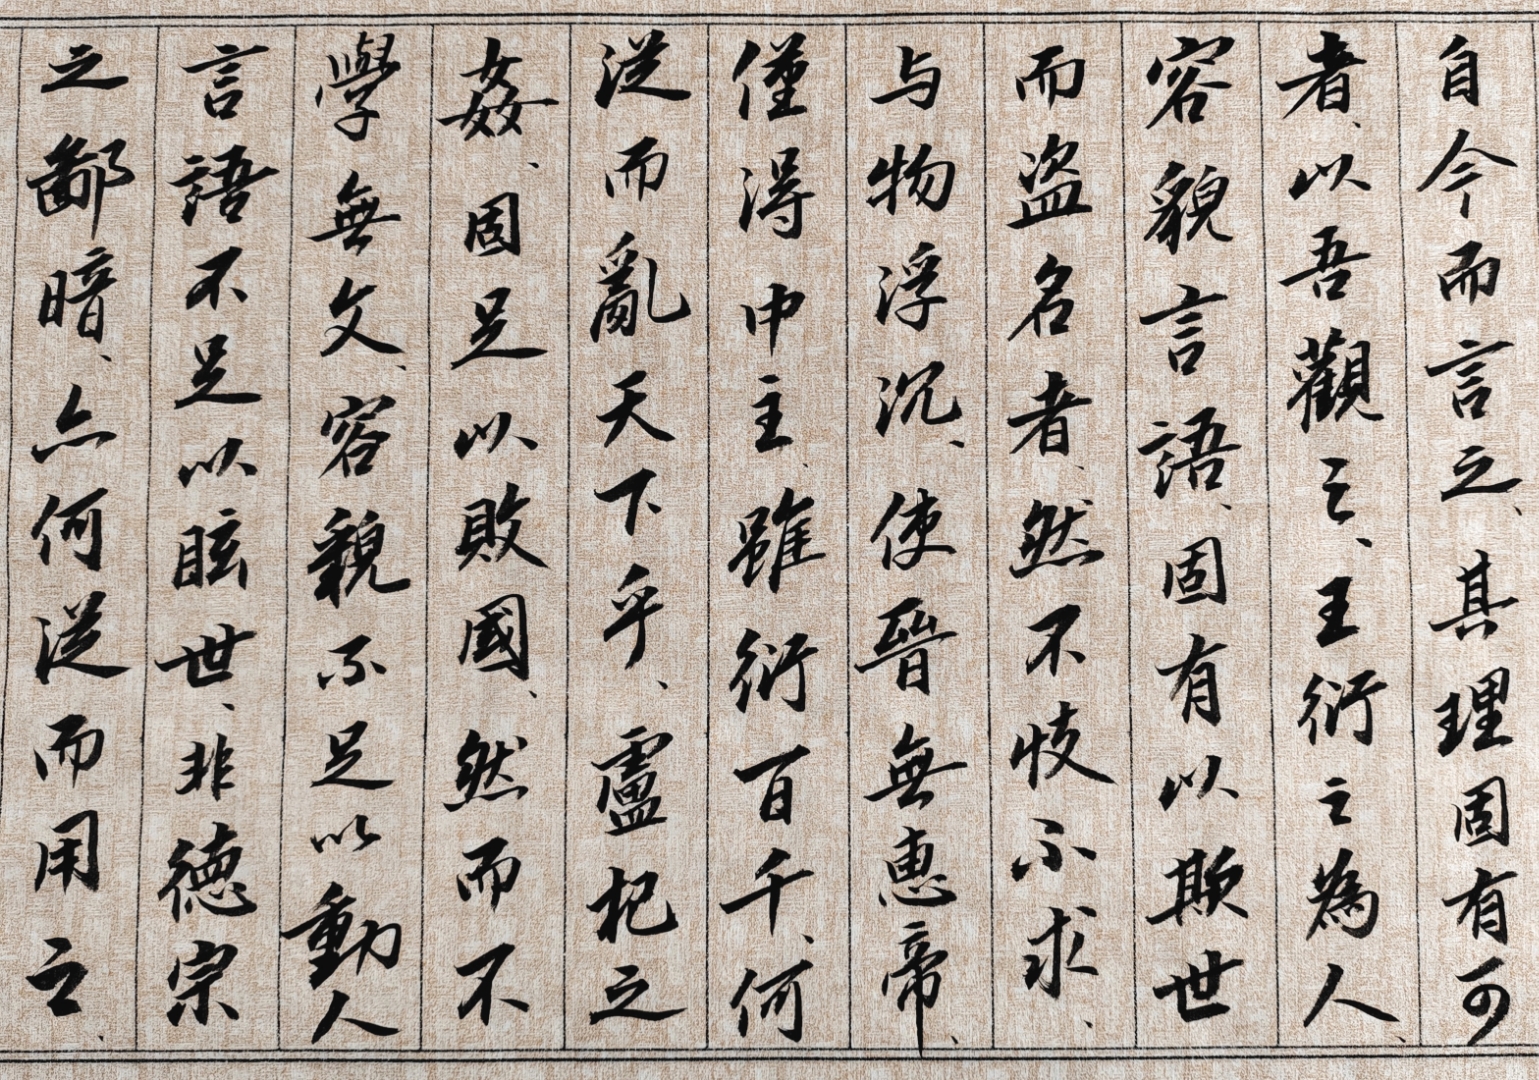 自今而言之、其理固有可
者、以吾觀之、王衍之為人、
容貌言語、固有以欺世
而盜名者、然不忮不求、
与物浮沉、使晉無惠帝、
僅得中主、雖衍百千、何
從而亂天下乎、盧杞之
姦、固足以敗國、然而不
學無文、容貌不足以動人
言語不足以眩世、非德宗
之鄙暗、亦何從而用之、